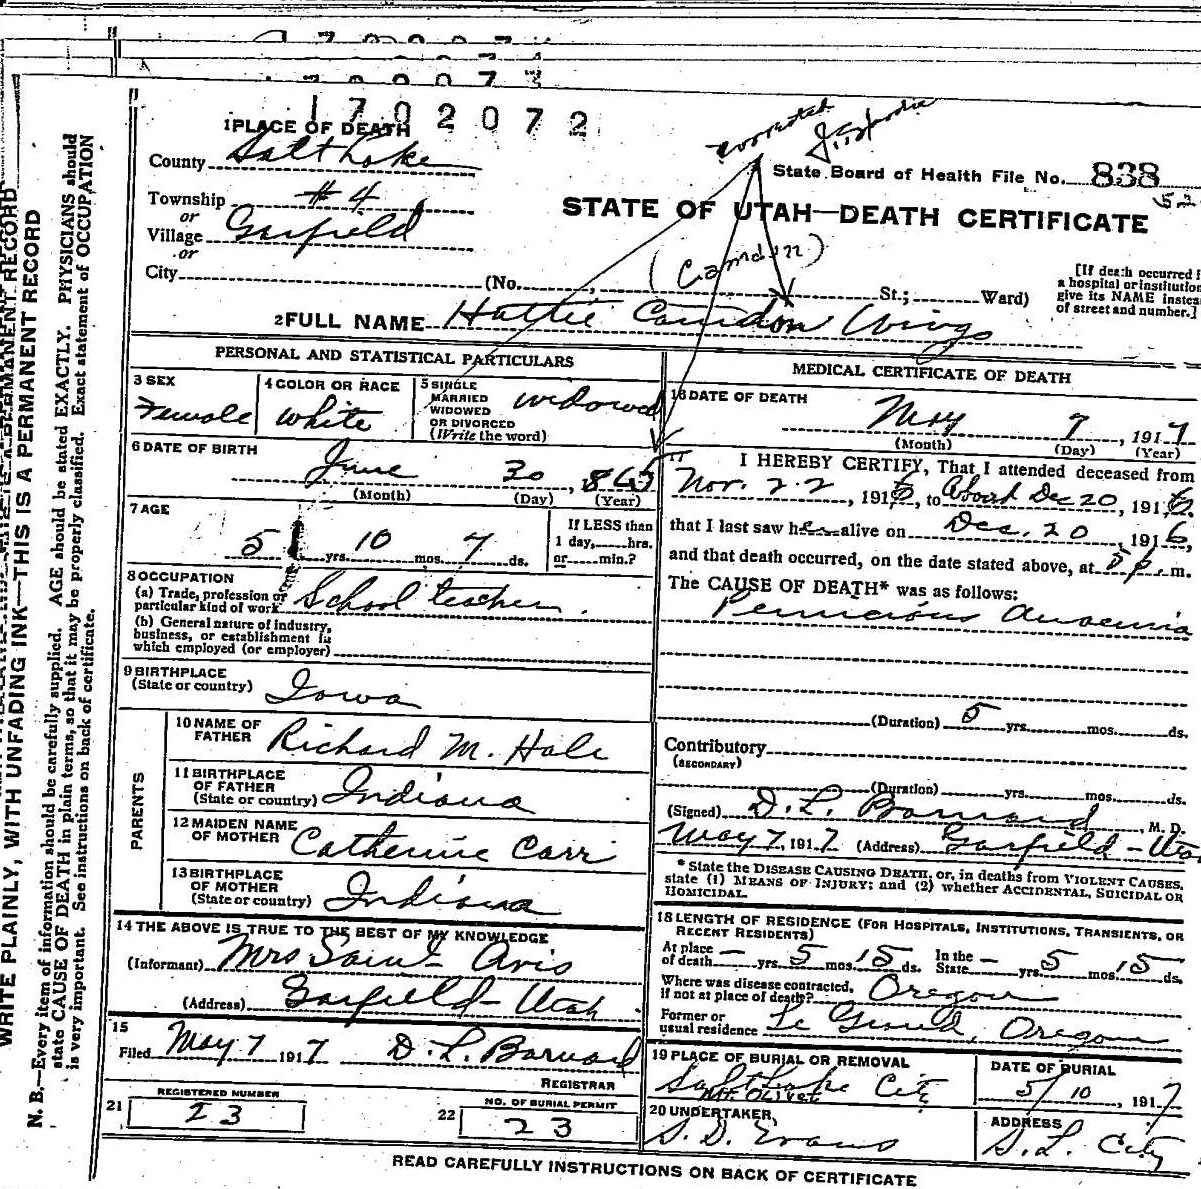 1702072
corrected
1 PLACE OF DEATH
County Salt Lake
State Board of Health File No. 838
Township #4
or
Village Garfield
or
City (No. , St.; Ward)
STATE OF UTAH—DEATH CERTIFICATE
52
(Camdin)
[If death occurred i
a hospital or institution
give its NAME instea
of street and number.]
2 FULL NAME Hattie Camdon Wings
PERSONAL AND STATISTICAL PARTICULARS
3 SEX
Female
4 COLOR OR RACE
White
5 SINGLE
MARRIED
WIDOWED
OR DIVORCED
(Write the word)
widowed
6 DATE OF BIRTH
June 30, 1865
(Month) (Day) (Year)
7 AGE
51 yrs. 10 mos. 7 ds.
If LESS than
1 day, hrs.
or min.?
8 OCCUPATION
(a) Trade, profession or
particular kind of work School teacher.
(b) General nature of industry,
business, or establishment in
which employed (or employer)
9 BIRTHPLACE
(State or country) Iowa
PARENTS
10 NAME OF
FATHER Richard M. Hale
11 BIRTHPLACE
OF FATHER
(State or country) Indiana
12 MAIDEN NAME
OF MOTHER Catherine Carr
13 BIRTHPLACE
OF MOTHER
(State or country) Indiana
14 THE ABOVE IS TRUE TO THE BEST OF MY KNOWLEDGE
(Informant) Mrs Saint Avis
(Address) Garfield - Utah
15
Filed May 7 1917 D. L. Barnard
REGISTRAR
REGISTERED NUMBER
21 23
NO. OF BURIAL PERMIT
22 23
MEDICAL CERTIFICATE OF DEATH
16 DATE OF DEATH
May 7, 1917
(Month) (Day) (Year)
17
I HEREBY CERTIFY, That I attended deceased from
Nov. 22, 1916, to About Dec 20, 1916,
that I last saw her alive on Dec. 20 1916,
and that death occurred, on the date stated above, at 5 p. m.
The CAUSE OF DEATH* was as follows:
Pernicious Anaemia
(Duration) 5 yrs. mos. ds.
Contributory
(SECONDARY)
(Duration) yrs. mos. ds.
(Signed) D. L. Barnard, M. D.
May 7, 1917 (Address) Garfield - Utah
* State the DISEASE CAUSING DEATH, or, in deaths from VIOLENT CAUSES,
state (1) MEANS OF INJURY; and (2) whether ACCIDENTAL, SUICIDAL OR
HOMICIDAL.
18 LENGTH OF RESIDENCE (FOR HOSPITALS, INSTITUTIONS, TRANSIENTS, OR
RECENT RESIDENTS)
At place
of death — yrs. 5 mos. 15 ds. In the
State — yrs. 5 mos. 15 ds.
Where was disease contracted,
if not at place of death? Oregon
Former or
usual residence Le Grand, Oregon
19 PLACE OF BURIAL OR REMOVAL
Salt Lake City
Mt. Olivet
DATE OF BURIAL
5/10, 1917
20 UNDERTAKER
S. D. Evans
ADDRESS
S. L. City
READ CAREFULLY INSTRUCTIONS ON BACK OF CERTIFICATE
WRITE PLAINLY, WITH UNFADING INK—THIS IS A PERMANENT RECORD
N. B.—Every item of information should be carefully supplied. AGE should be stated EXACTLY. PHYSICIANS should
state CAUSE OF DEATH in plain terms, so that it may be properly classified. Exact statement of OCCUPATION
is very important. See instructions on back of certificate.